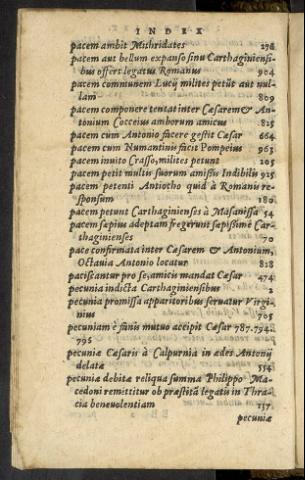 INDEX
pacem ambit Mithridates 276
pacem aut bellum expanso sinu Carthaginiensi-
bus offert legatus Romanus 904
pacem communem Lucij milites petūt aut nul-
lam 809
pacem componere tentat inter Cæsarem & An-
tonium Cocceius amborum amicus 825
pacem cum Antonio facere gestit Cæsar 664
pacem cum Numantinis facit Pompeius 963
pacem inuito Crasso, milites petunt 205
pacem petit multis suorum amissis Indibilis 925
pacem petenti Antiocho quid à Romanis re-
sponsum 180
pacem petunt Carthaginienses à Masanissa 54
pacem sæpius adeptam fregerunt sæpissimè Car-
thaginienses 70
pace confirmata inter Cæsarem & Antonium,
Octauia Antonio locatur 828
paciscantur pro se, amicis mandat Cæsar 474
pecunia indicta Carthaginensibus 2
pecunia promissa apparitoribus seruatur Virgi-
nius 705
pecuniam è fanis mutuo accipit Cæsar 787.794.
795
pecuniæ Cæsaris à Calpurnia in ædes Antonij
delatæ 554
pecuniæ debitæ reliqua summa Philippo Ma-
cedoni remittitur ob præstitā legatis in Thra-
cia beneuolentiam 157
pecuniæ